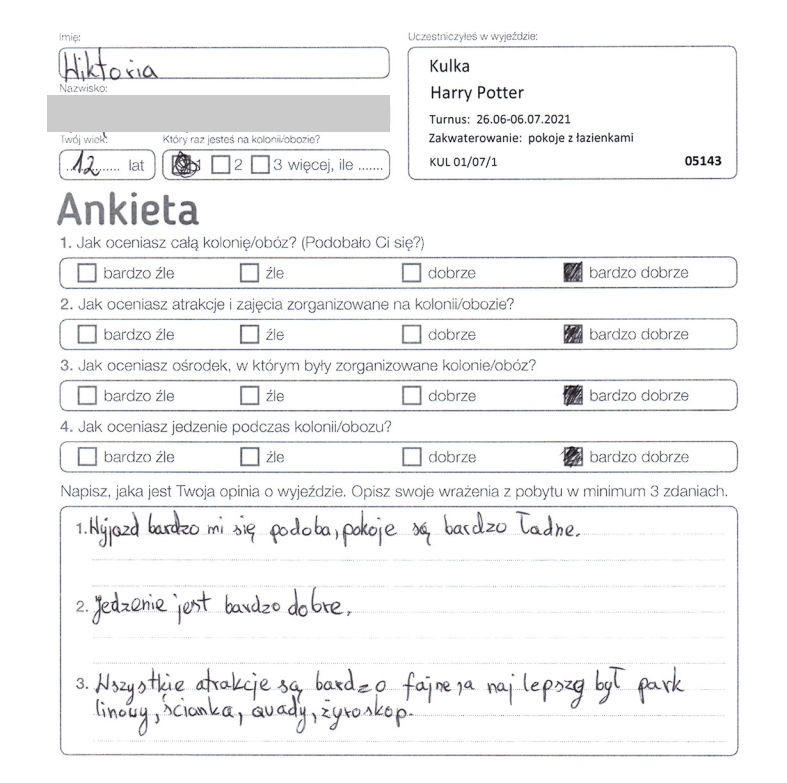 Imię:
Wiktoria
Nazwisko:
Twój wiek:
12 lat
Który raz jesteś na kolonii/obozie?
1 2 3 więcej, ile .......
Uczestniczyłeś w wyjeździe:
Kulka
Harry Potter
Turnus: 26.06-06.07.2021
Zakwaterowanie: pokoje z łazienkami
KUL 01/07/1 05143
Ankieta
1. Jak oceniasz całą kolonię/obóz? (Podobało Ci się?)
bardzo źle źle dobrze bardzo dobrze
2. Jak oceniasz atrakcje i zajęcia zorganizowane na kolonii/obozie?
bardzo źle źle dobrze bardzo dobrze
3. Jak oceniasz ośrodek, w którym były zorganizowane kolonie/obóz?
bardzo źle źle dobrze bardzo dobrze
4. Jak oceniasz jedzenie podczas kolonii/obozu?
bardzo źle źle dobrze bardzo dobrze
Napisz, jaka jest Twoja opinia o wyjeździe. Opisz swoje wrażenia z pobytu w minimum 3 zdaniach.
1. Wyjazd bardzo mi się podoba, pokoje są bardzo ładne.
2. Jedzenie jest bardzo dobre.
3. Wszystkie atrakcje są bardzo fajne, a najlepszy był park
linowy, ścianka, quady, żyroskop.